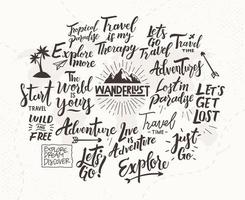 Tropical
Paradise
Travel
is my
Therapy
Let's
Go
Travel
Travel
TIME
Explore
more
Adventures
The
World
is
Yours
WANDERLUST
Lost in
Paradise
LET'S
GET
LOST
Start
TRAVEL
WILD
THE
FREE
Adventure
Live
is
Adventure
Travel
TIME
Just
Go!
EXPLORE
DREAM
DISCOVER
Let's
Go!
Explore